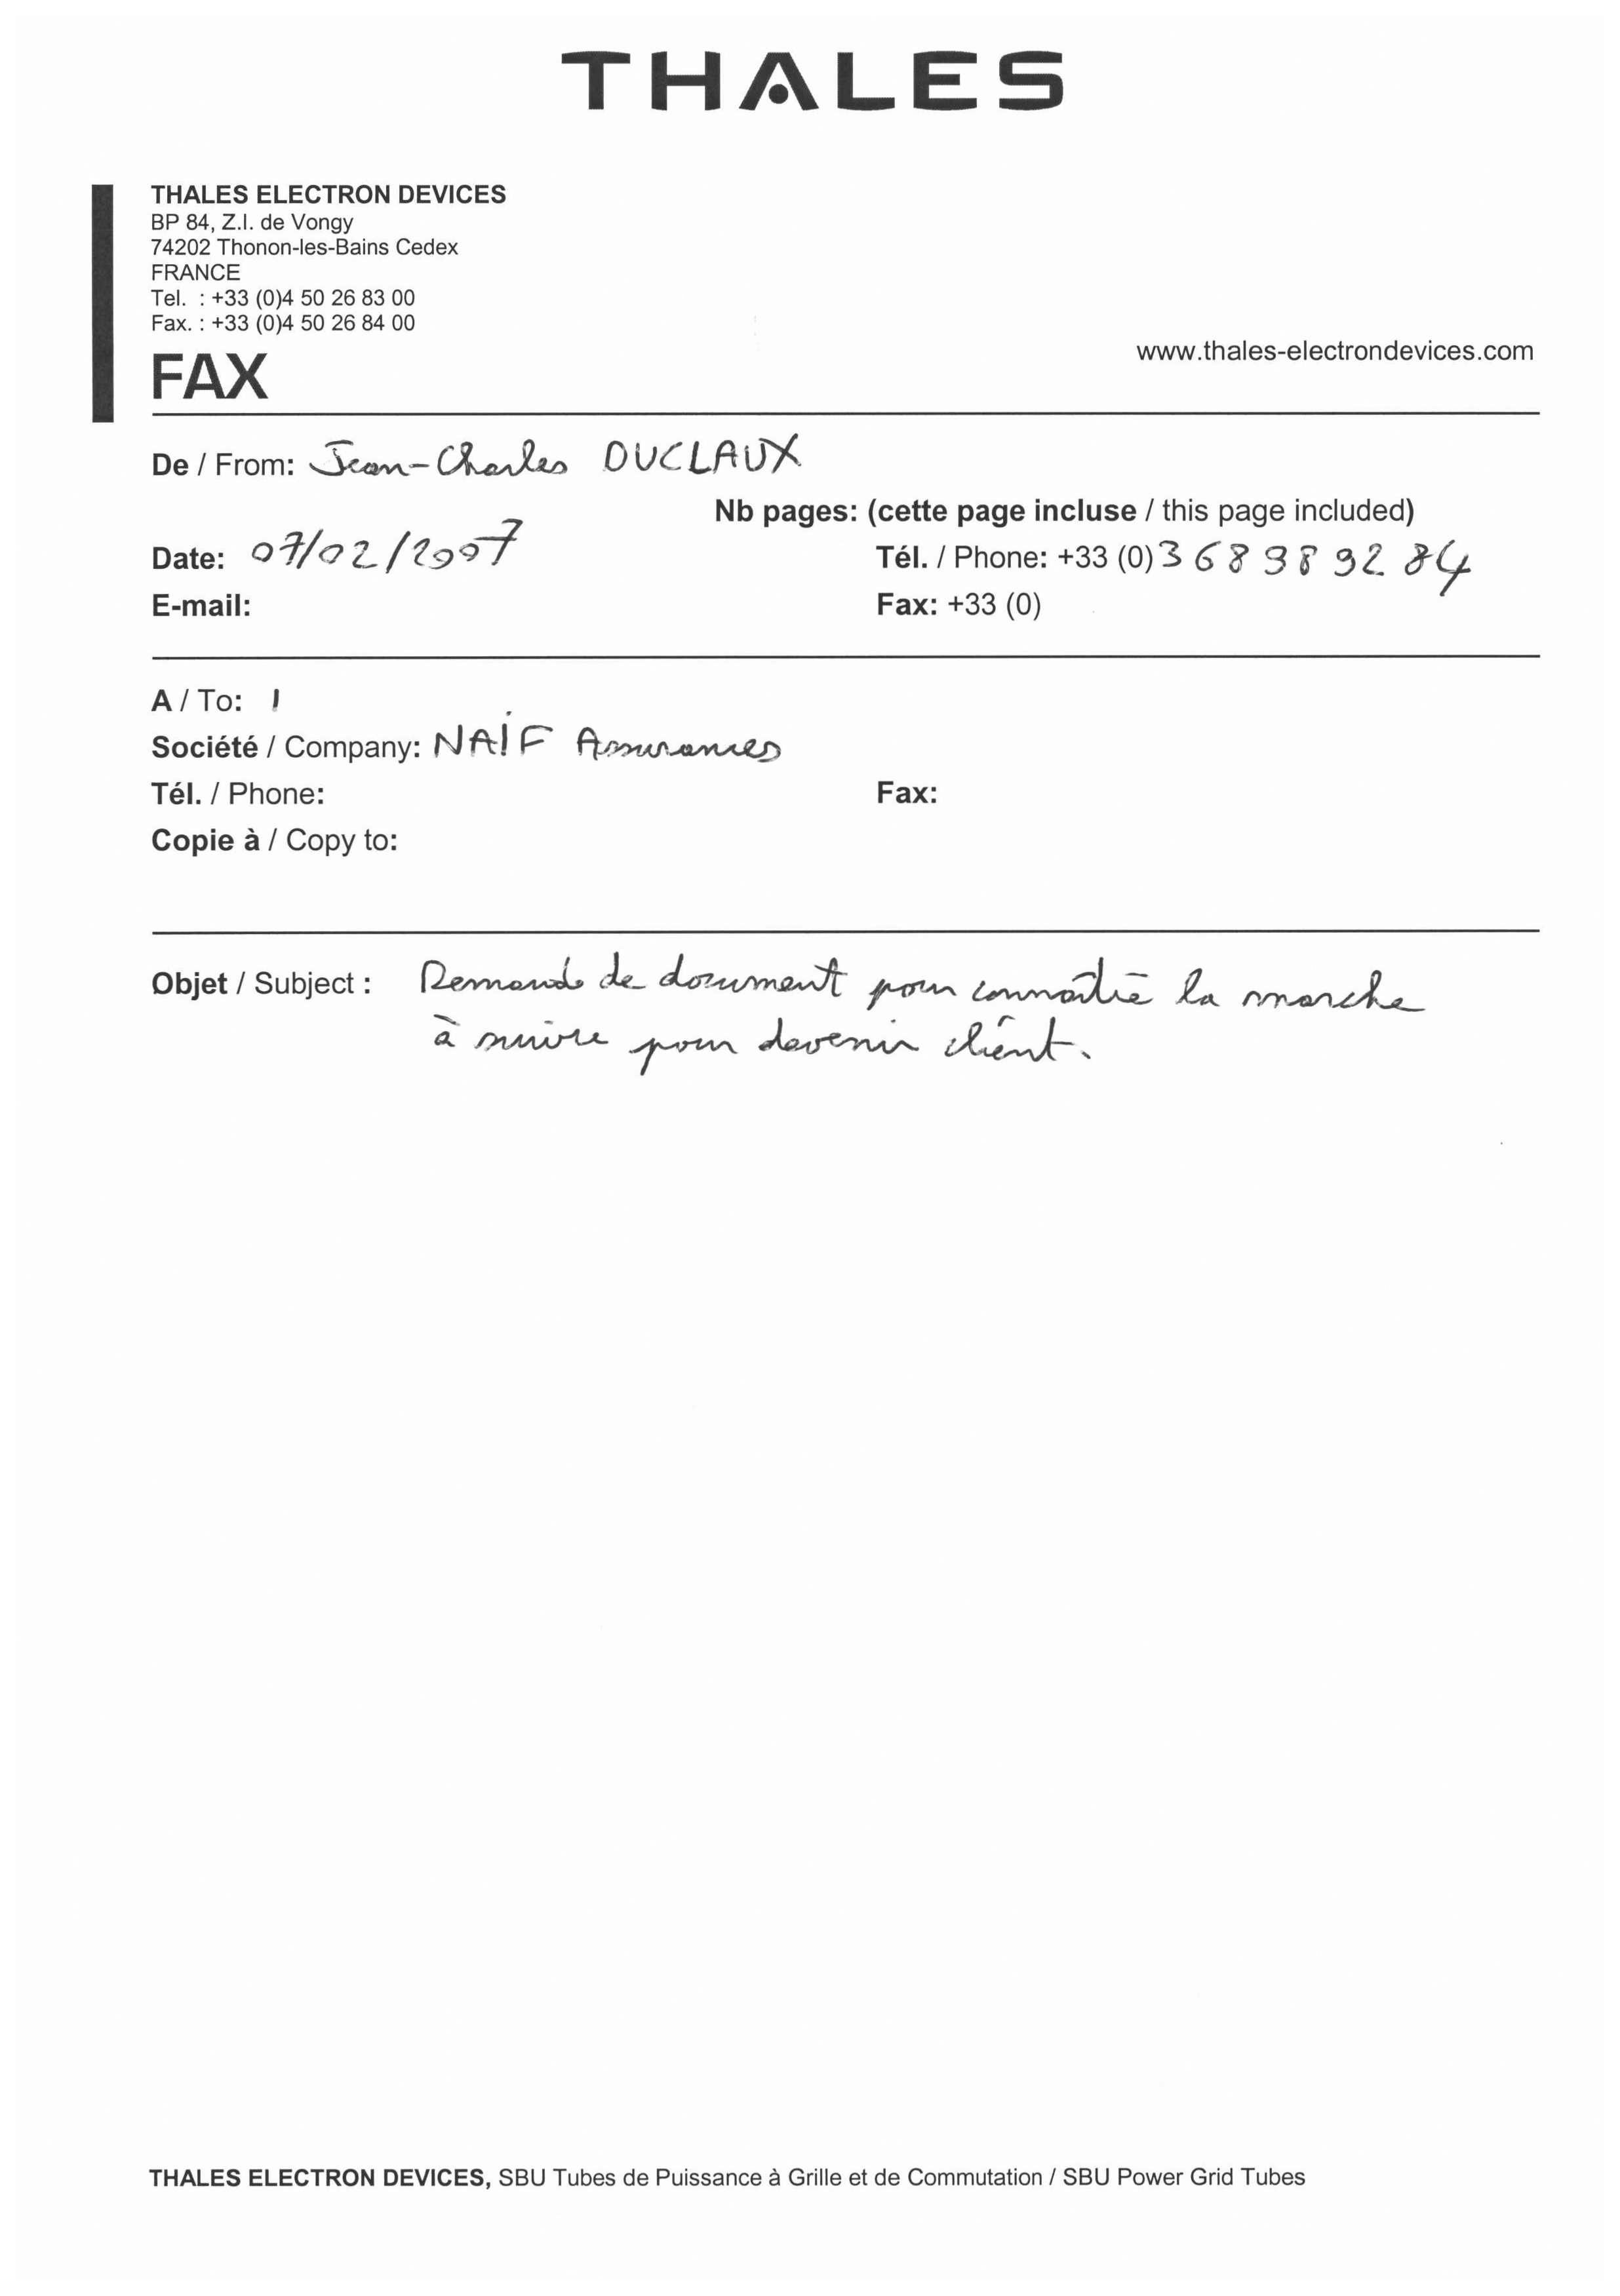 THALES
THALES ELECTRON DEVICES
BP 84, Z.I. de Vongy
74202 Thonon-les-Bains Cedex
FRANCE
Tel. : +33 (0)4 50 26 83 00
Fax. : +33 (0)4 50 26 84 00
www.thales-electrondevices.com
FAX
De / From: Jean-Charles DUCLAUX
Nb pages: (cette page incluse / this page included)
Date: 07/02/2007
Tél. / Phone: +33 (0) 3 68 98 92 84
E-mail:
Fax: +33 (0)
A / To: 1
Société / Company: NAIF Assurances
Tél. / Phone:
Fax:
Copie à / Copy to:
Objet / Subject : Demande de document pour connaître la marche
à suivre pour devenir client.
THALES ELECTRON DEVICES, SBU Tubes de Puissance à Grille et de Commutation / SBU Power Grid Tubes